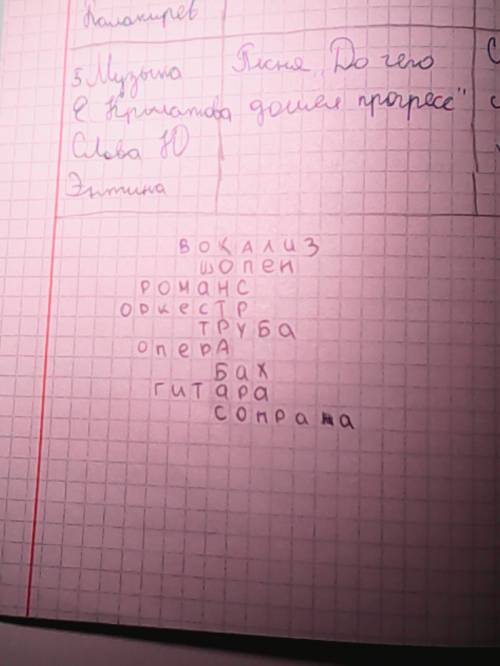 Балакирев
5 Музыка Песня „До чего
Е Крылатова дошёл прогресс"
Слова Ю
Энтина
вокализ
шопен
романс
оркестр
труба
опера
Бах
гитара
сопрана